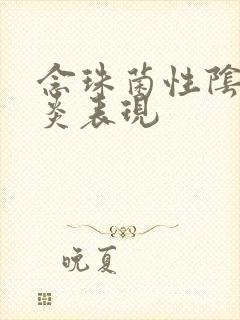 念珠菌性陰
炎表現
晚夏